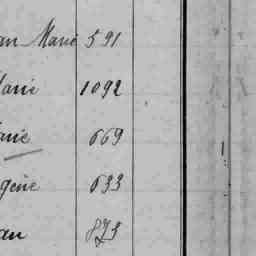 an Marie 591
Marie 1092
arie 669
gène 633
an 873